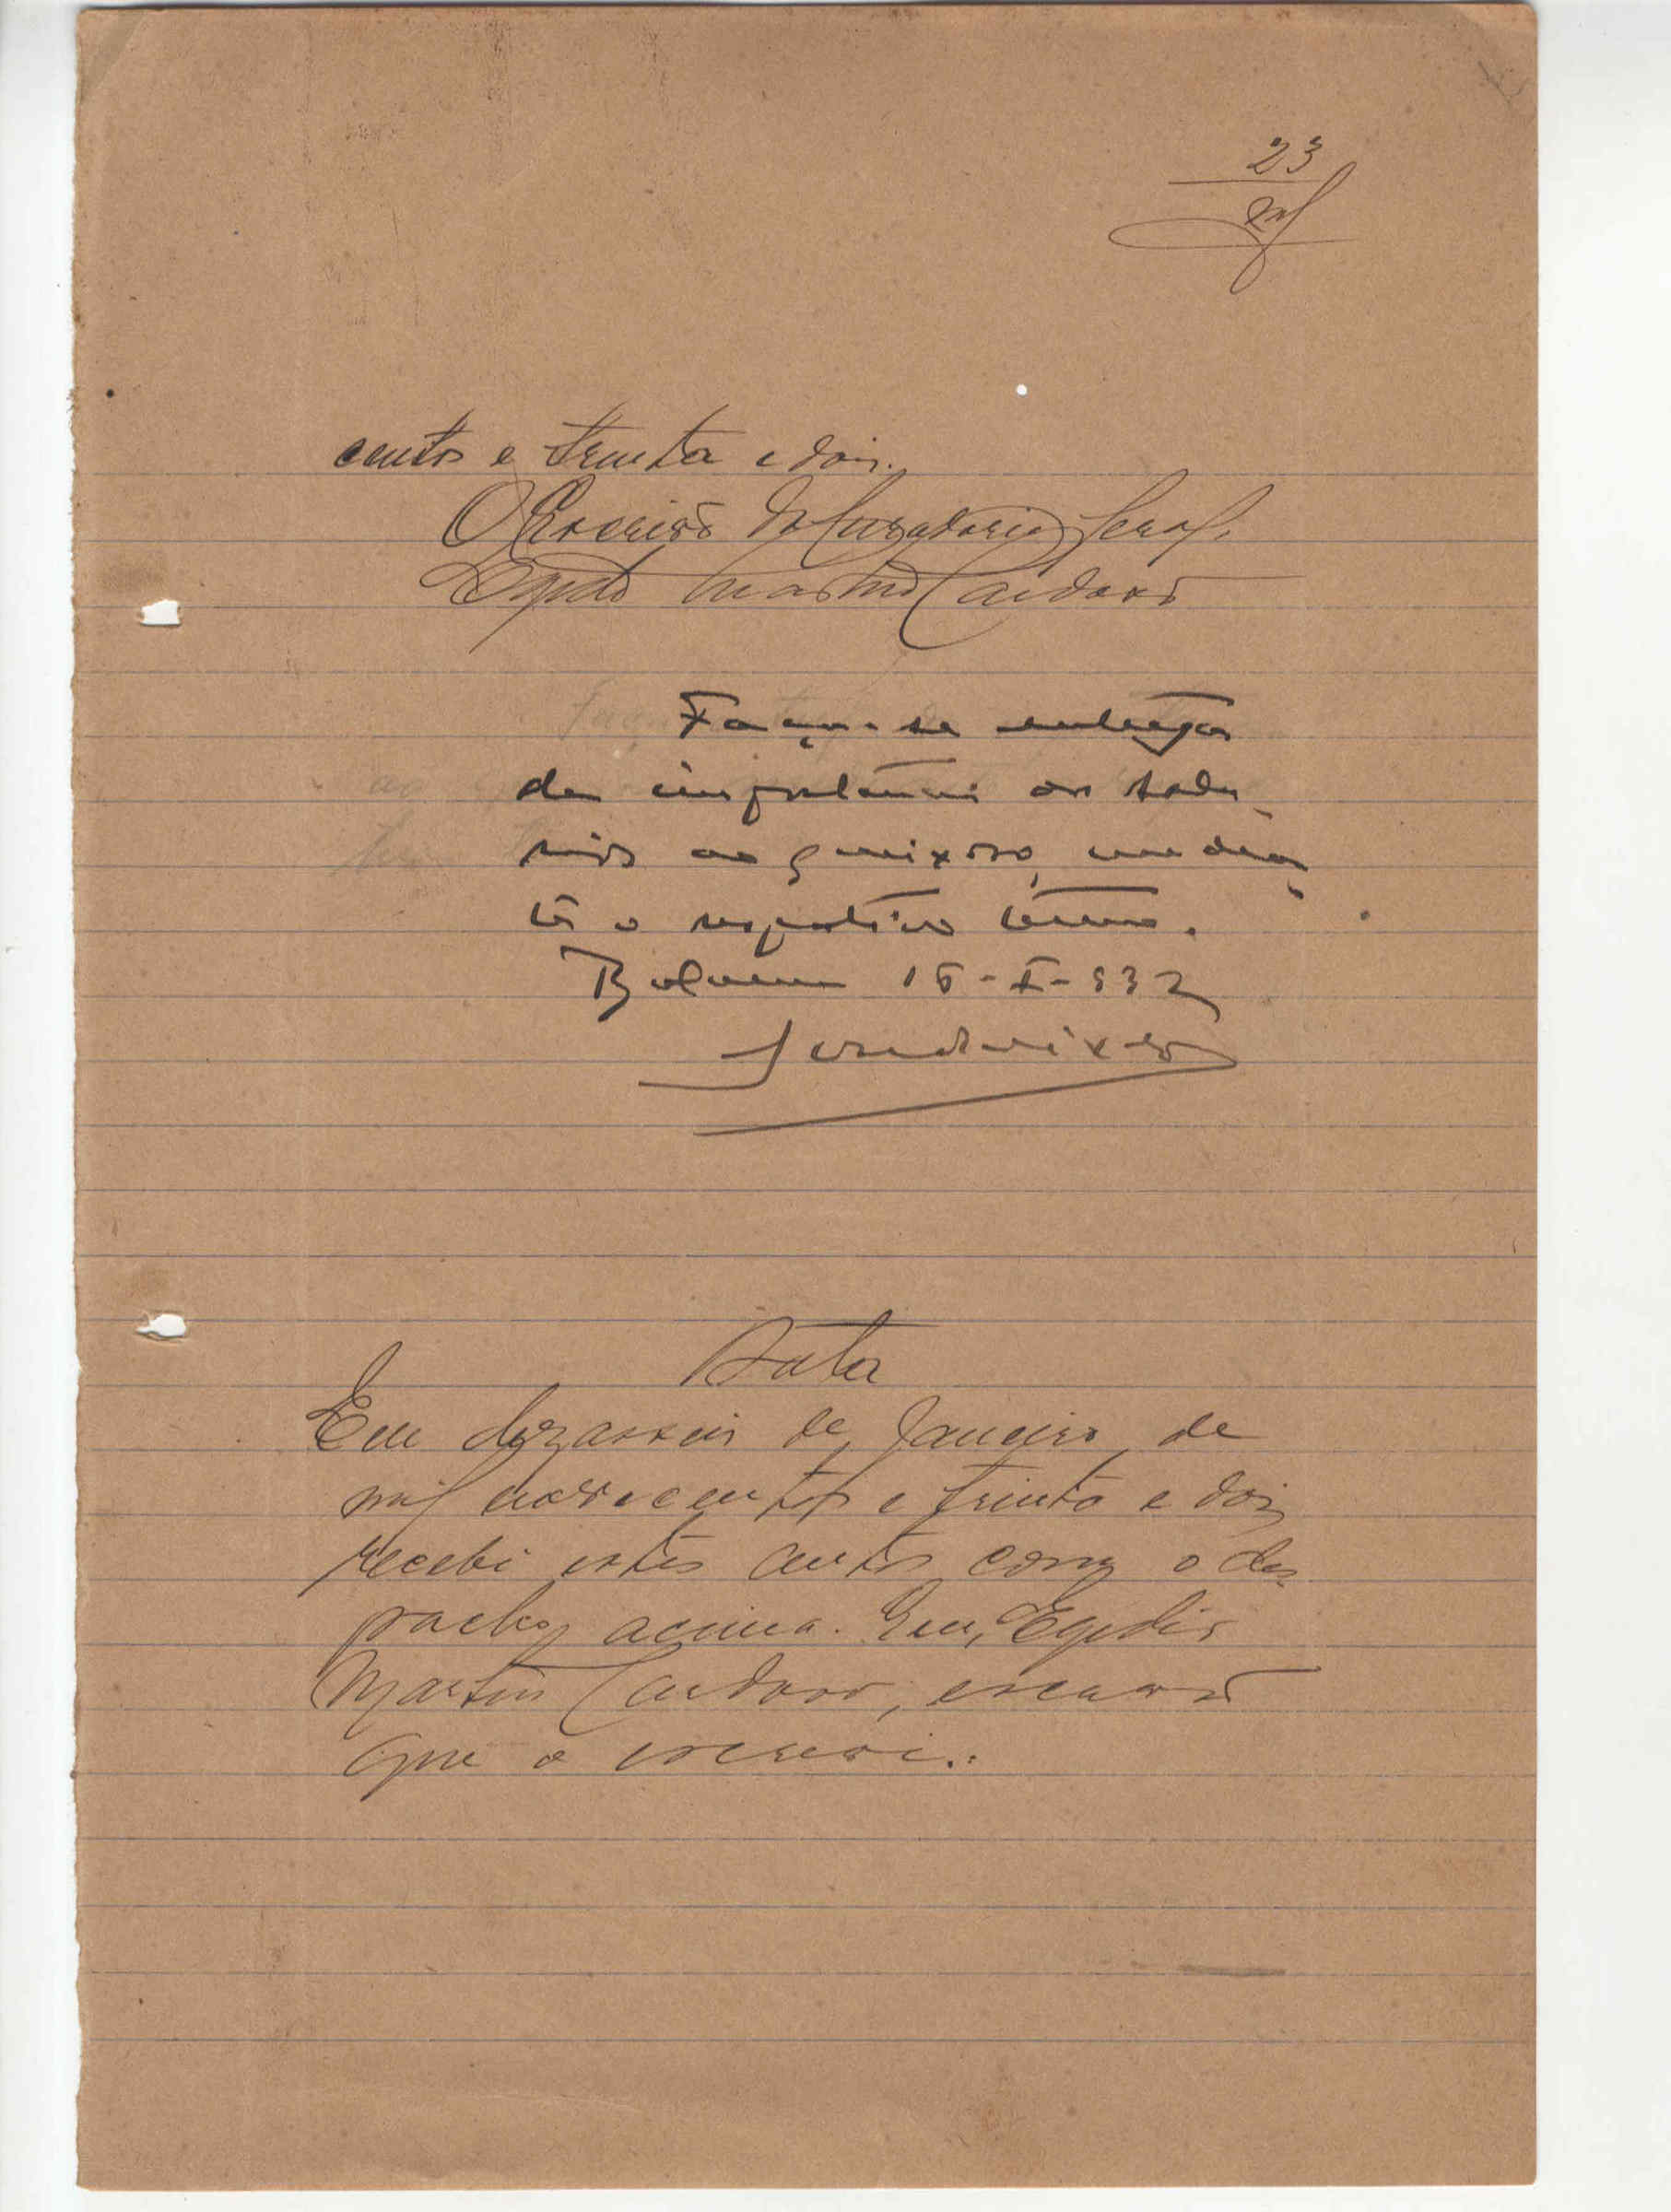 23
centos e trinta e dois.
O Escrivão da Curadoria Geral,
Egidio Martins Cardoso
Faça-se entrega
da importancia ao
ao queixoso, median
te o respectivo termo.
16-I-932
Data
Em dezasseis de Janeiro de
mil novecentos e trinta e dois
recebi estes autos com o des-
pacho acima. Eu, Egidio
Martins Cardoso, escrivão
que o escrevi.